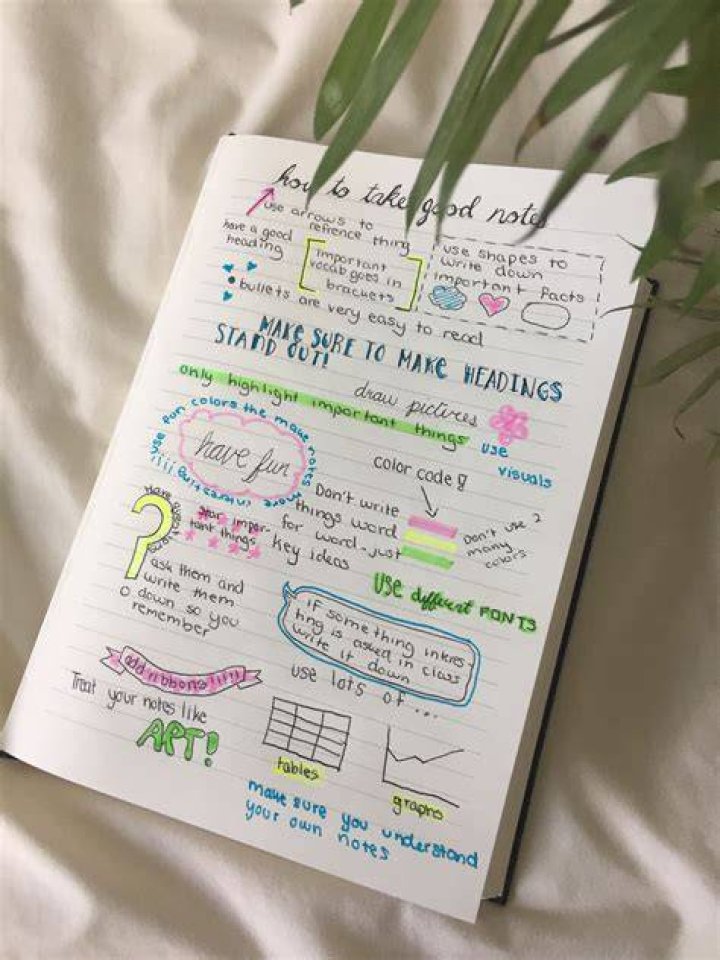 how to take good notes
use arrows to
refrence thing
have a good
heading
important
vocab goes in
brackets
use shapes to
write down
important facts
bullets are very easy to read
MAKE SURE TO MAKE HEADINGS
STAND OUT!
only highlight important things
draw pictures
use
visuals
use fun colors the make notes more interesting!!!!
have fun
color code
Don't write
things word
for word - just
key ideas
Don't use 2
many
colors
Have questions
star impor-
tant things
ask them and
write them
down so you
remember
USE different FONTS
if something interes-
ting is asked in class
write it down
add ribbons!!!!!
use lots of ...
Treat your notes like
ART!
tables
graphs
make sure you understand
your own notes